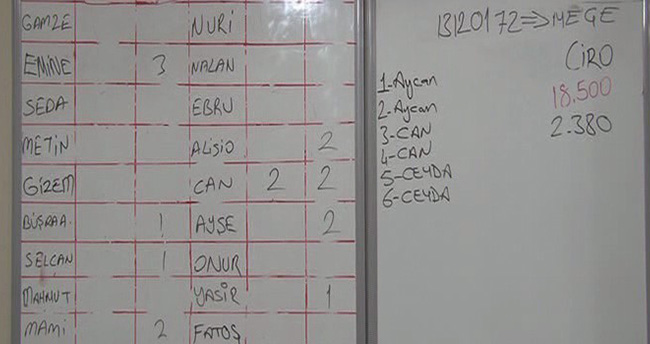 GAMZE NURİ
EMİNE 3 NALAN
SEDA EBRU
METİN ALİŞİO 2
GİZEM CAN 2 2
BÜŞRAA 1 AYŞE 2
SELÇAN 1 ONUR
MAHMUT YASİR 1
MAMİ 2 FATOŞ
13120172⇒MEGE
CİRO
1-Aycan 18.500
2-Aycan 2.380
3-CAN
4-CAN
5-CEYDA
6-CEYDA